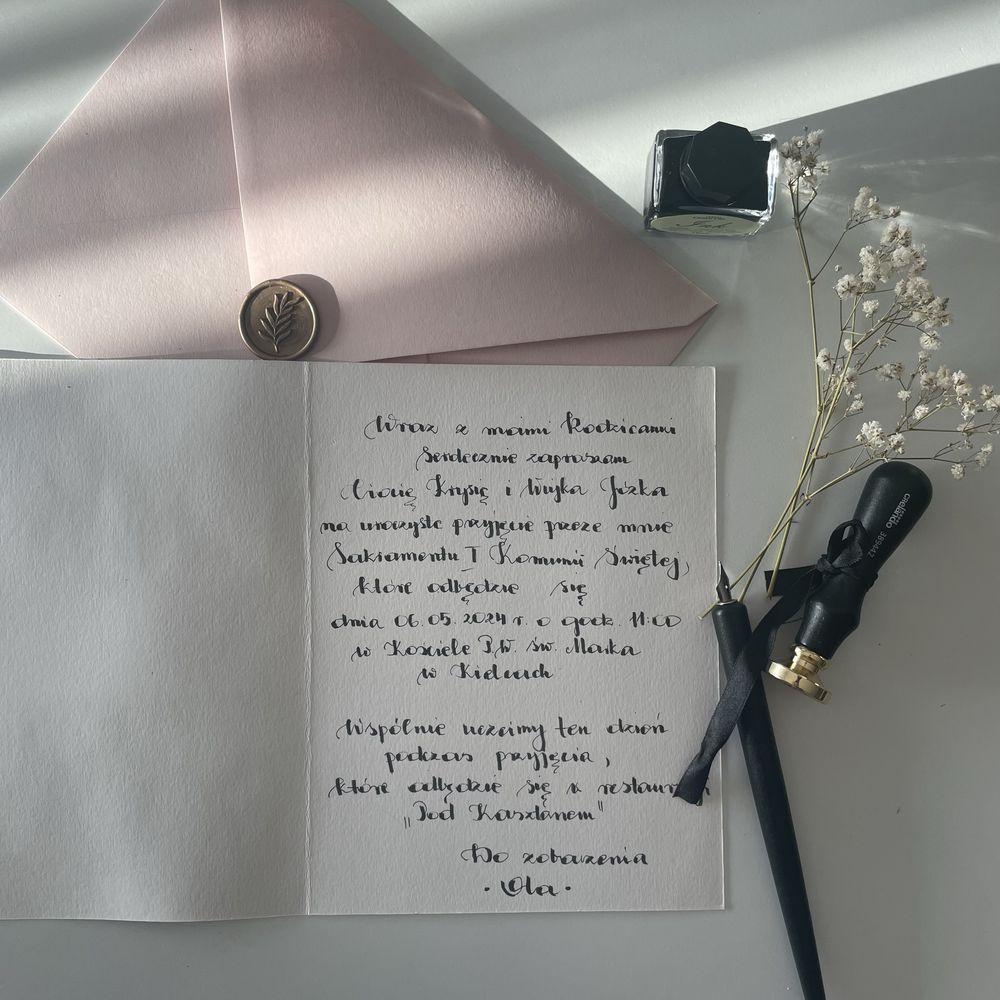 Ink
crelando 389442
Wraz z moimi Rodzicami
Serdecznie zapraszam
Ciocię Krysię i Wujka Józka
na uroczyste przyjęcie przeze mnie
Sakramentu I Komunii Świętej,
które odbędzie się
dnia 06.05.2024 r. o godz. 11:00
w Kościele P.W. św. Marka
w Kielcach
Wspólnie uczcimy ten dzień
podczas przyjęcia,
które odbędzie się w
„Pod Kasztanem"
Do zobaczenia
· Ola ·